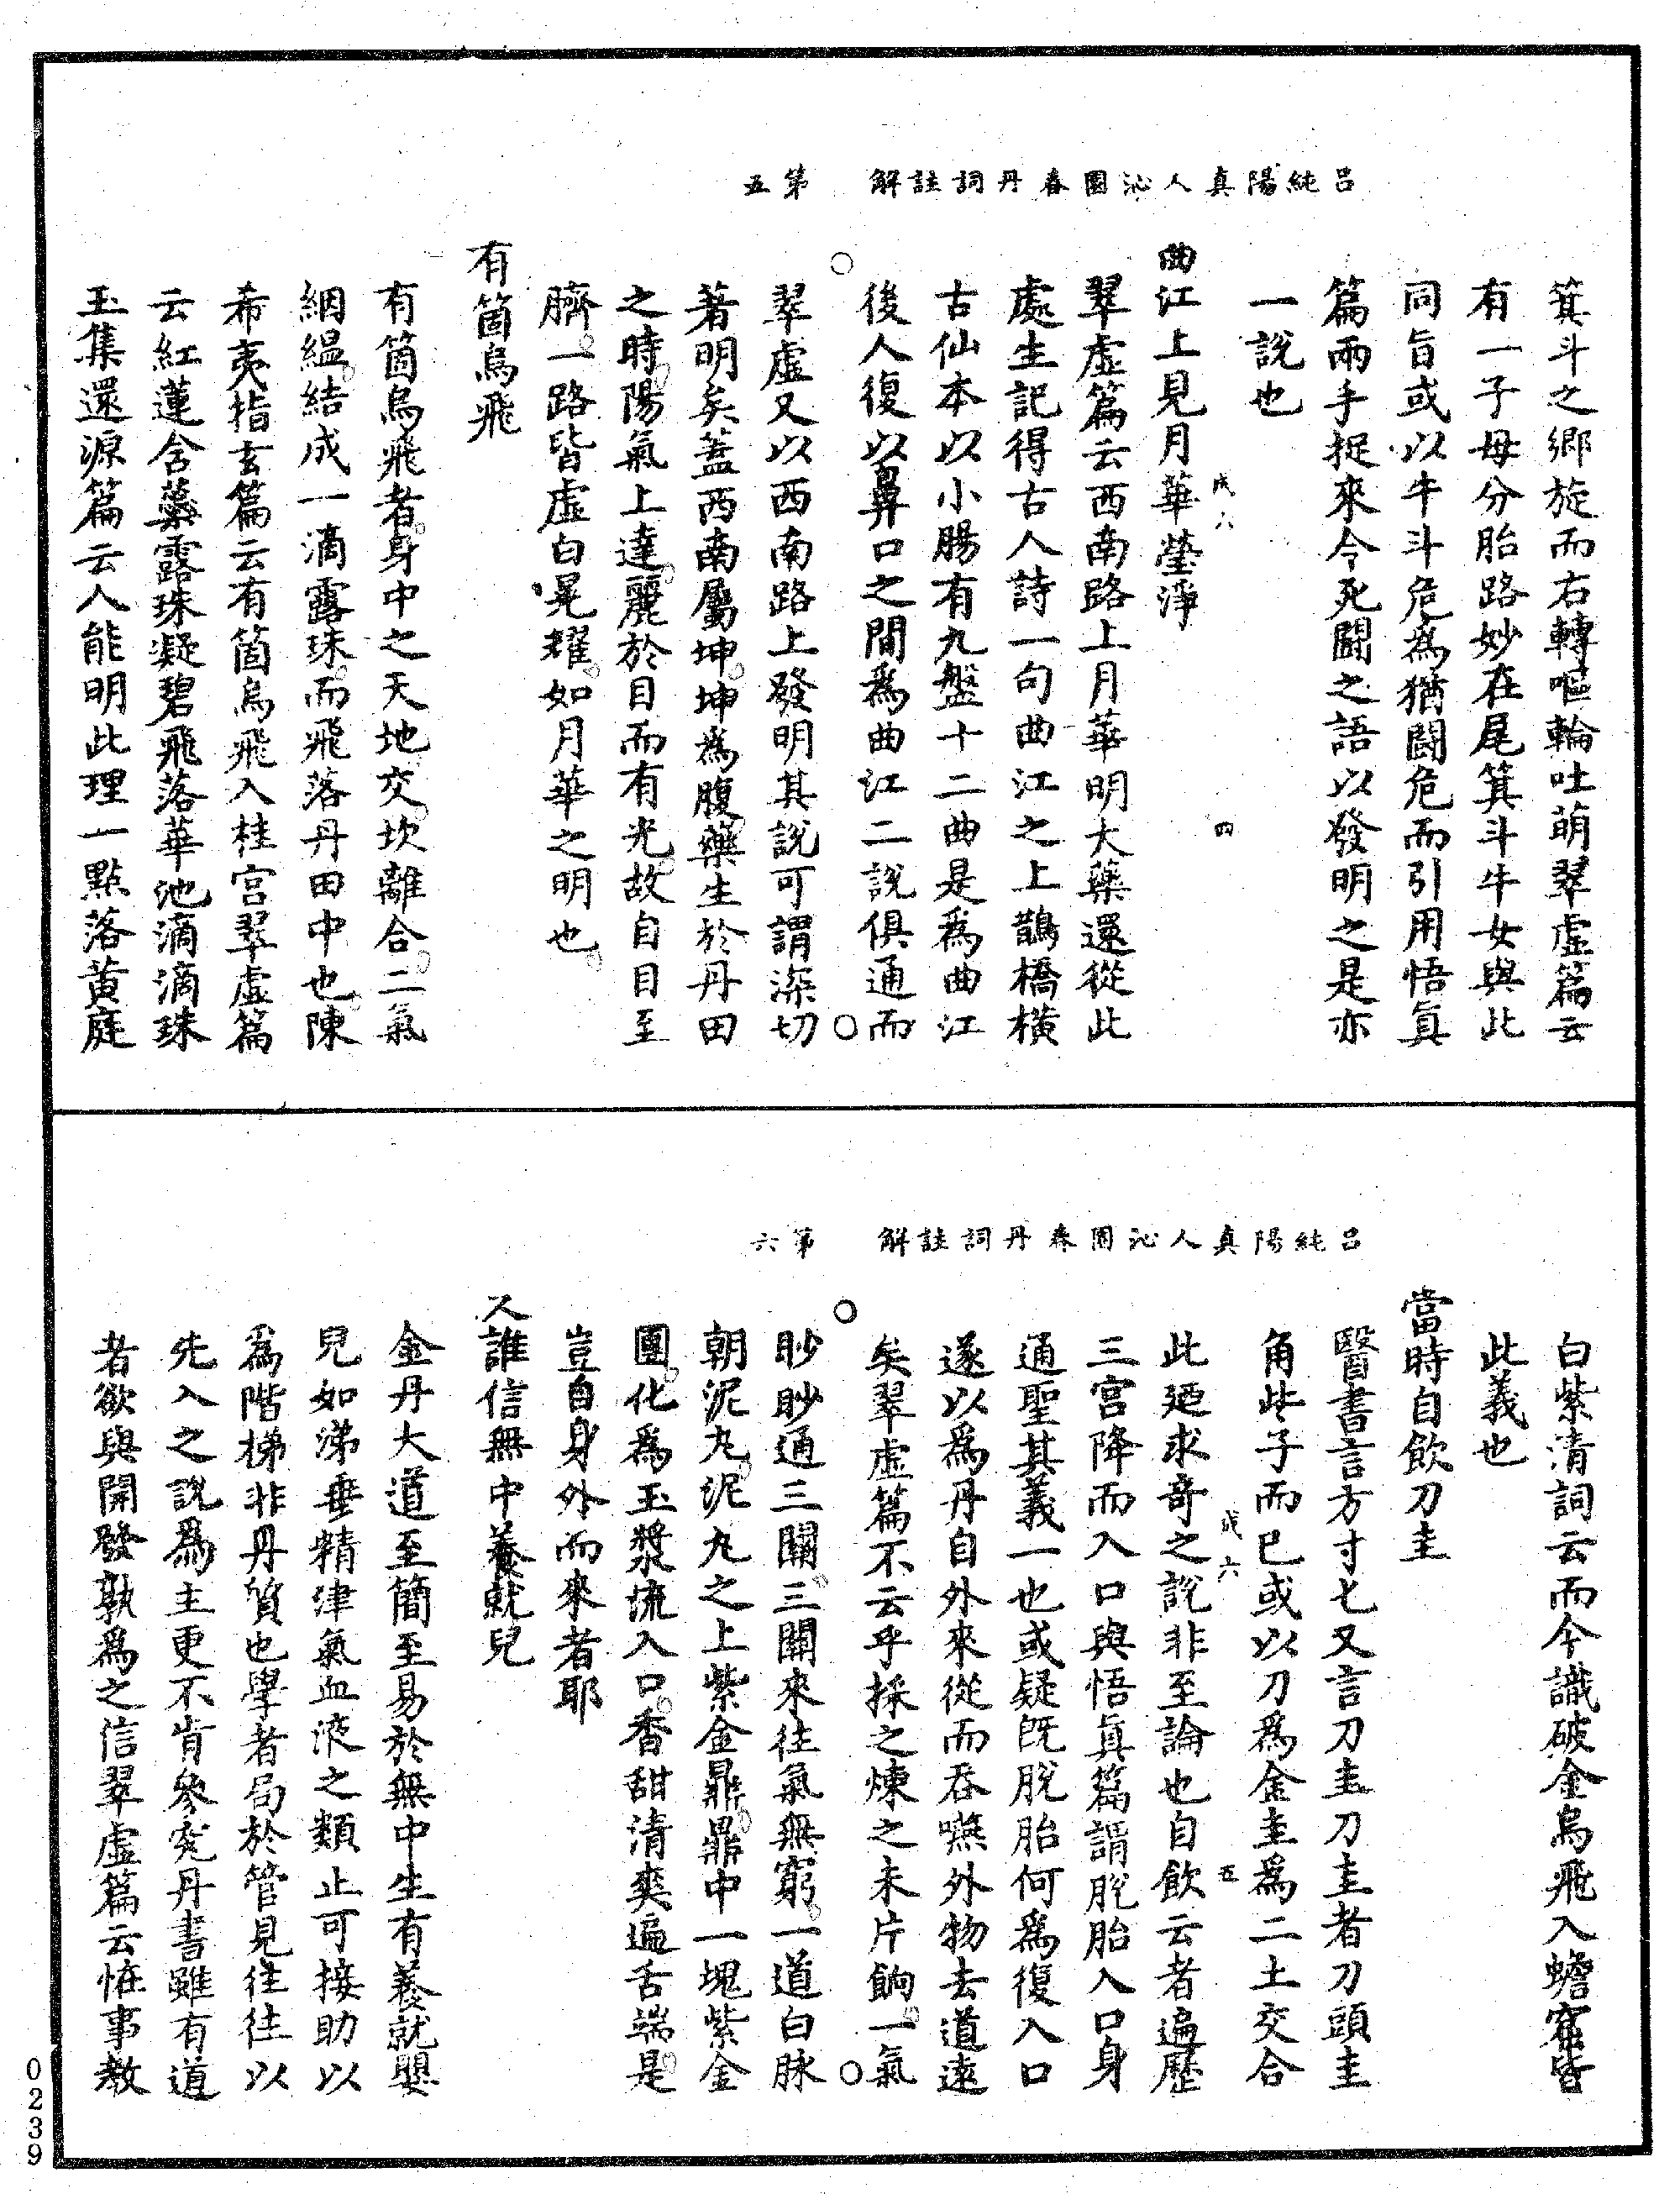 呂純陽真人沁園春丹詞註解　第五
箕斗之鄉旋而右轉嘔輪吐萌翠虛篇云
有一子母分胎路妙在尾箕斗牛女與此
同旨或以牛斗危為猶闘危而引用悟真
篇兩手捉來令死闘之語以發明之是亦
一說也
曲江上見月華瑩淨
戌六　四
翠虛篇云西南路上月華明大藥還從此
處生記得古人詩一句曲江之上鵲橋橫
古仙本以小腸有九盤十二曲是為曲江
後人復以鼻口之間為曲江二說俱通而
翠虛又以西南路上發明其說可謂深切
著明矣蓋西南屬坤坤為腹藥生於丹田
之時陽氣上達麗於目而有光故自目至
臍一路皆虛白晃耀如月華之明也
有箇烏飛
有箇烏飛者身中之天地交坎離合二氣
絪縕結成一滴露珠而飛落丹田中也陳
希夷指玄篇云有箇烏飛入桂宮翠虛篇
云紅蓮含蘂露珠凝碧飛落華池滴滴珠
玉集還源篇云人能明此理一點落黃庭
呂純陽真人沁園春丹詞註解　第六
白紫清詞云而今識破金烏飛入蟾窟皆
此義也
當時自飲刀圭
醫書言方寸匕又言刀圭刀圭者刀頭圭
角些子而已或以刀為金圭為二土交合
戌六　五
此迺求奇之說非至論也自飲云者遍歷
三宮降而入口與悟真篇謂脫胎入口身
通聖其義一也或疑既脫胎何為復入口
遂以為丹自外來從而吞嚥外物去道遠
矣翠虛篇不云乎採之煉之未片餉一氣
眇眇通三關三關來往氣無窮一道白脉
朝泥丸泥丸之上紫金鼎鼎中一塊紫金
團化為玉漿流入口香甜清爽遍舌端是
豈自身外而來者耶
又誰信無中養就兒
金丹大道至簡至易於無中生有養就嬰
兒如涕唾精津氣血液之類止可接助以
為階梯非丹質也學者局於管見往往以
先入之說為主更不肯參究丹書雖有道
者欲與開發孰為之信翠虛篇云怪事教
0239